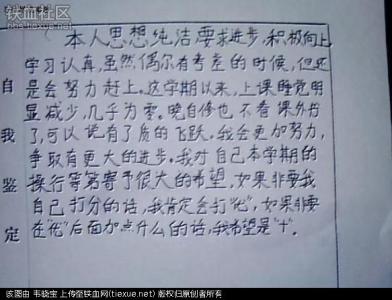 铁血社区
tiexue.net
自我鉴定
本人思想纯洁要求进步,积极向上,
学习认真,虽然偶尔有考差的时候,但还
是会努力赶上。这学期以来,上课睡觉明
显减少,几乎为零。晚自修也不看课外书
了,可以说有了质的飞跃,我会更加努力,
争取有更大的进步。我对自己本学期的
操行等第寄予很大的希望,如果非要我
自己打分的话,我肯定会打“优”,如果非要
在“优”后面加点什么的话,我希望是“+”。
该图由 韦骁宝 上传至铁血网(tiexue.net) 版权归原创者所有